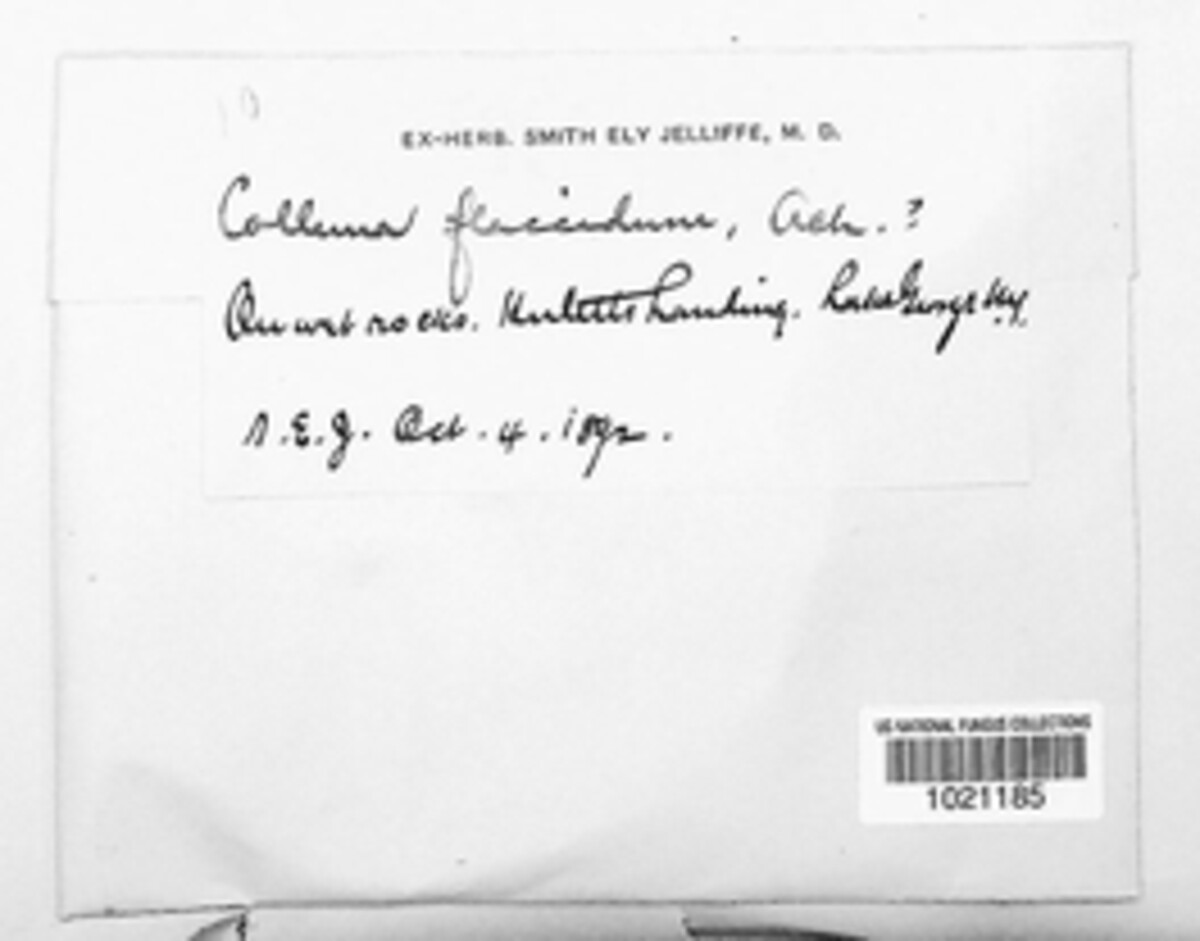 EX-HERB. SMITH ELY JELLIFFE, M. D.
Collema flaccidum, Ach. ?
On wet rocks. Huletts Landing. Lake George N.Y.
S.E.J. Oct. 4. 1892.
US NATIONAL FUNGUS COLLECTIONS
1021185